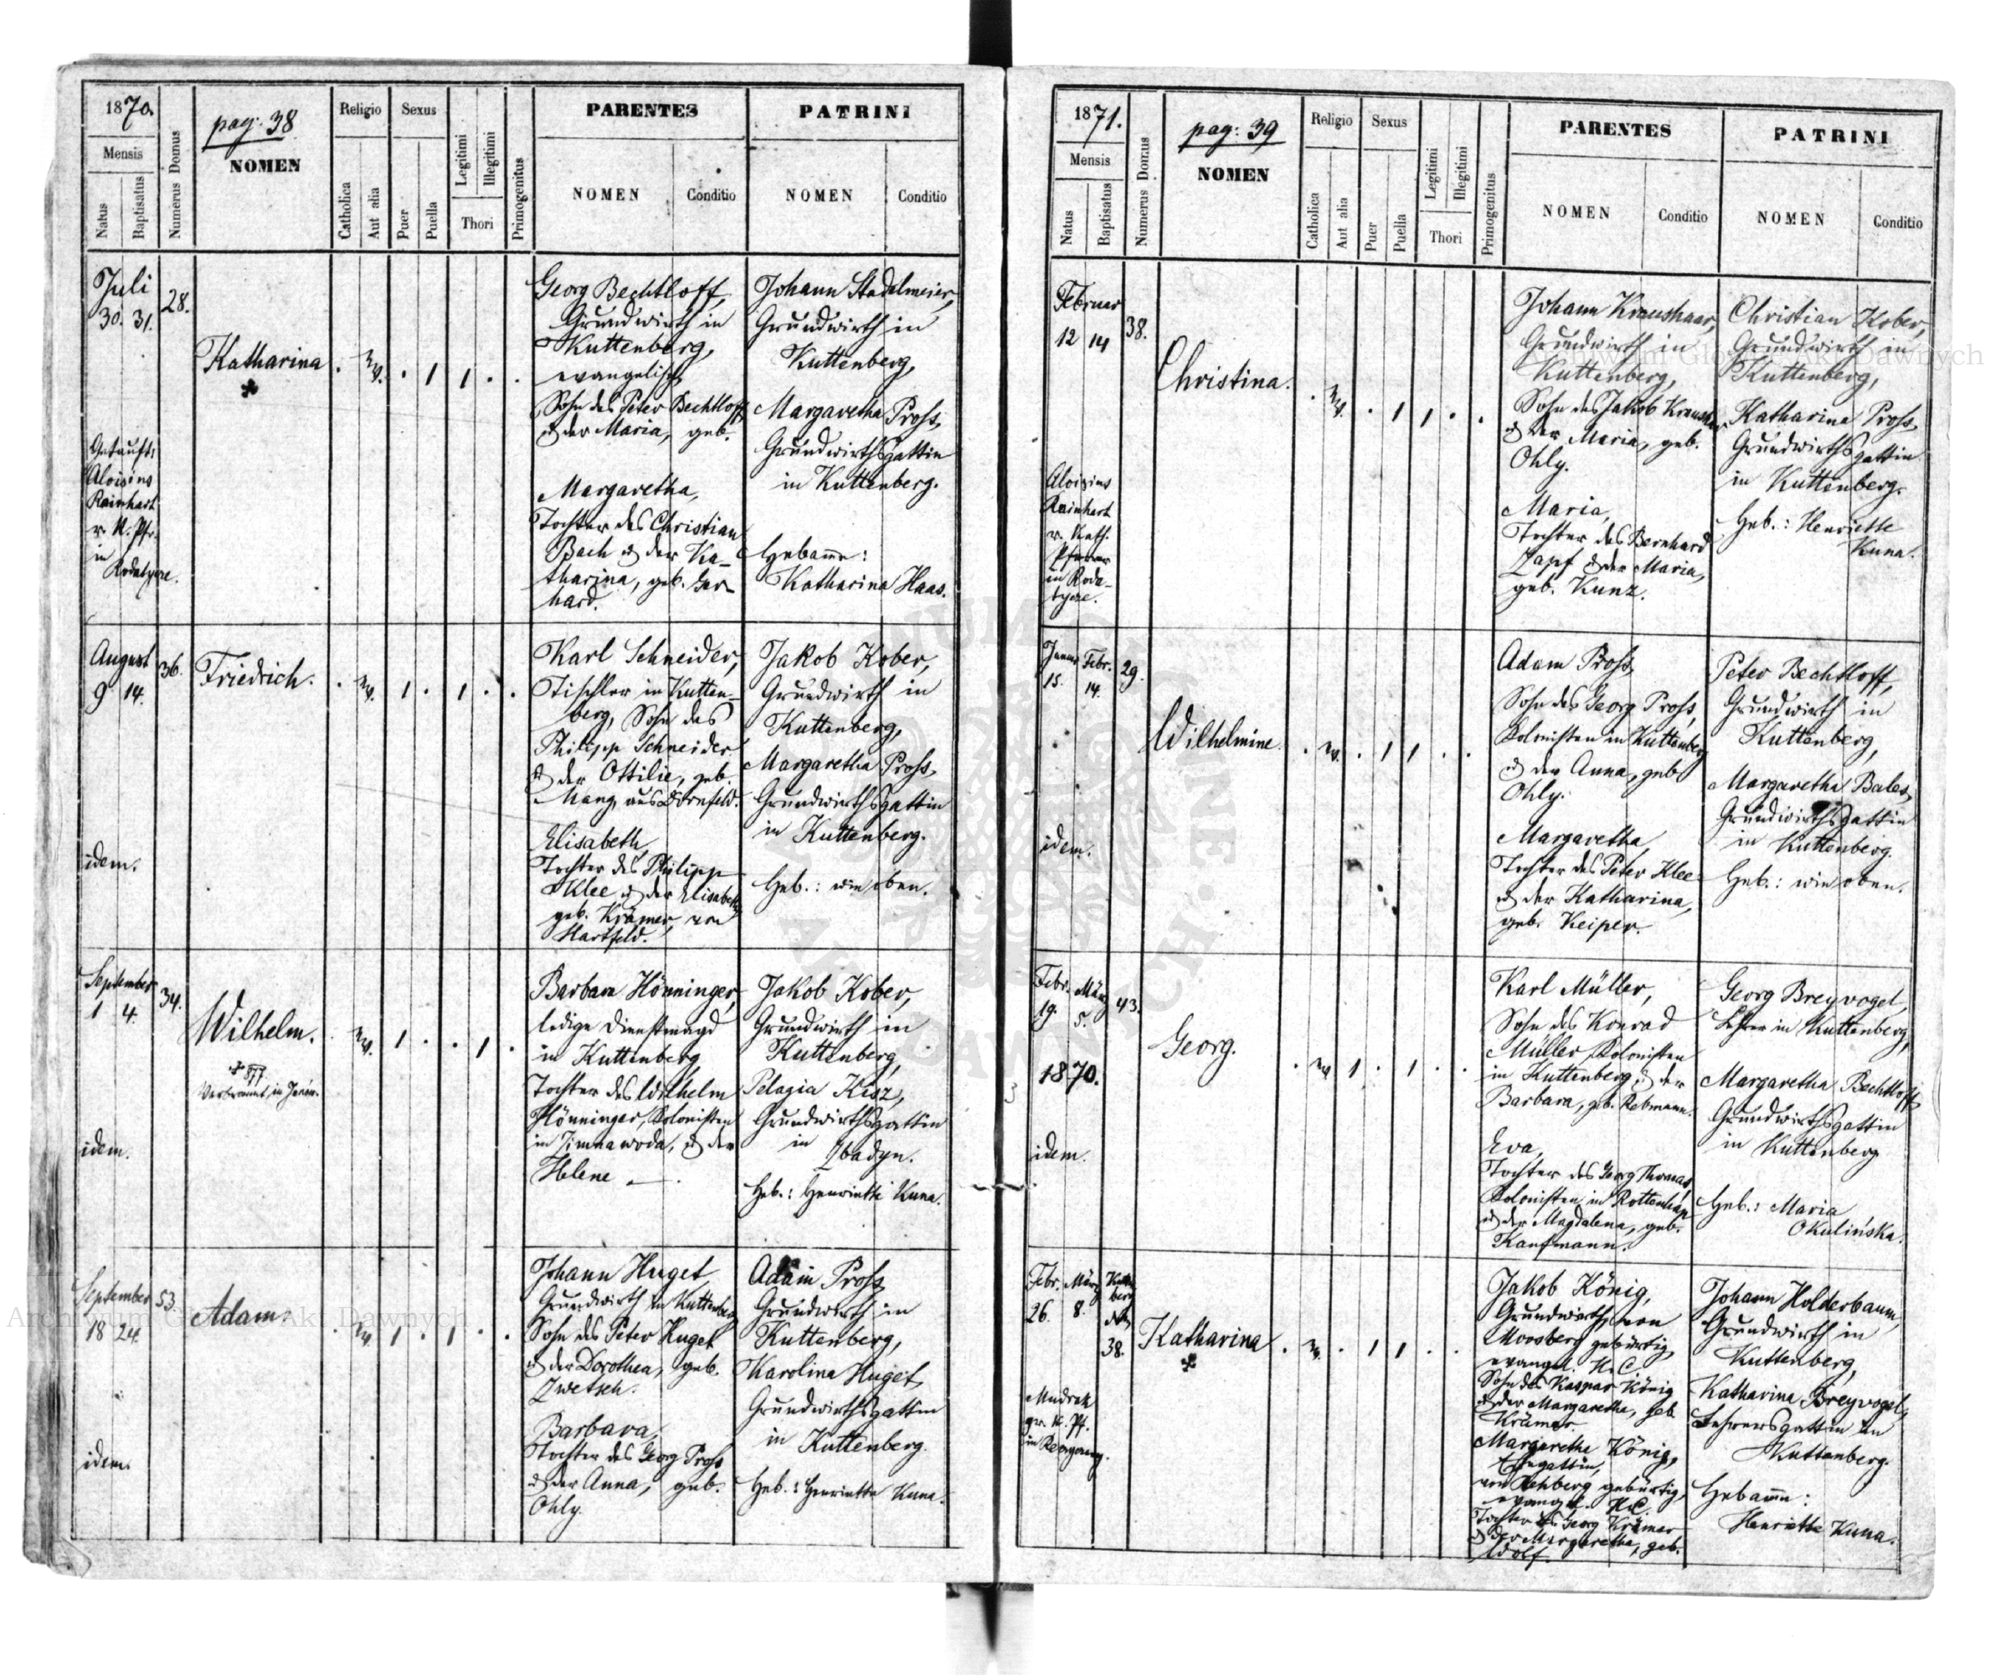 1870.
pag: 38
Mensis
Natus
Baptisatus
Numerus Domus
NOMEN
Religio
Catholica
Aut alia
Sexus
Puer
Puella
Legitimi
Illegitimi
Thori
Primogenitus
PARENTES
NOMEN
Conditio
PATRINI
NOMEN
Conditio
Juli
30. 31.
28.
Getauft:
Aloisius
Rainhart
r. K. Pfr.
in
Rodatycze.
Katharina
ev.
1
1
Georg Bechtloff,
Grundwirth in
Kuttenberg,
evangelisch
Sohn des Peter Bechtloff
& der Maria, geb.
Margaretha,
Tochter des Christian
Bach & der Ka-
tharina, geb. Ger-
hard.
Johann Stadelmeier,
Grundwirth in
Kuttenberg,
Margaretha Pross,
Grundwirthsgattin
in Kuttenberg.
Hebamme:
Katharina Haas.
August
9 14.
36.
idem.
Friedrich.
ev.
1
1
Karl Schneider,
Tischler in Kutten-
berg, Sohn des
Philipp Schneider
& der Ottilie, geb.
Mang aus Dornfeld.
Elisabeth
Tochter des Philipp
Klee & der Elisabeth
geb. Krämer, von
Hartfeld.
Jakob Kober,
Grundwirth in
Kuttenberg,
Margaretha Pross,
Grundwirthsgattin
in Kuttenberg.
Heb.: wie oben.
September
1 4.
34.
idem.
Wilhelm.
Verbrannt, in
ev.
1
1
Barbara Hönninger,
ledige Dienstmagd
in Kuttenberg,
Tochter des Wilhelm
Hönninger, Kolonisten
in Zimnawoda, & der
Helene —.
Jakob Kober,
Grundwirth in
Kuttenberg,
Pelagia Kisz,
Grundwirthsgattin
in
Zbadyn.
Heb.: Henriette Kuna.
September
18 24.
53.
idem.
Adam.
ev.
1
1
Johann Huget
Grundwirth in Kuttenberg
Sohn des Peter Huget
& der Dorothea, geb.
Zwetsch.
Barbara,
Tochter des Georg Pross
& der Anna, geb.
Ohly.
Adam Pross
Grundwirth in
Kuttenberg,
Karolina Huget,
Grundwirthsgattin
in Kuttenberg.
Heb.: Henriette Kuna.
1871.
pag: 39
Mensis
Natus
Baptisatus
Numerus Domus
NOMEN
Religio
Catholica
Aut alia
Sexus
Puer
Puella
Legitimi
Illegitimi
Thori
Primogenitus
PARENTES
NOMEN
Conditio
PATRINI
NOMEN
Conditio
Februar
12 14
38.
Aloisius
Rainhart
r. Kath.
Pfarrer
in Roda-
tycze.
Christina.
ev.
1
1
Johann Kraushaar,
Grundwirth in
Kuttenberg,
Sohn des Jakob Kraushaar
& der Maria, geb.
Ohly.
Maria,
Tochter des Bernhard
Zapf & der Maria,
geb. Kunz.
Christian Kober,
Grundwirth in
Kuttenberg,
Katharina Pross,
Grundwirthsgattin
in Kuttenberg.
Heb.: Henriette
Kuna.
Januar Febr.
15. 14.
29.
idem.
Wilhelmine
ev.
1
1
Adam Pross,
Sohn des Georg Pross,
Kolonisten in Kuttenberg
& der Anna, geb.
Ohly.
Margaretha
Tochter des Peter Klee
& der Katharina,
geb. Keiper.
Peter Bechtloff,
Grundwirth in
Kuttenberg,
Margaretha Bales,
Grundwirthsgattin
in Kuttenberg.
Heb.: wie oben.
Febr. März
19. 5.
43.
1870.
idem.
Georg.
ev
1
1
Karl Müller,
Sohn des Konrad
Müller, Kolonisten
in Kuttenberg, & der
Barbara, geb. Rebmann.
Eva,
Tochter des Georg Thomas,
Kolonisten in Rottenhan
& der Magdalena, geb.
Kaufmann.
Georg Breyvogel,
Lehrer in Kuttenberg,
Margaretha Bechtloff,
Grundwirthsgattin
in Kuttenberg
Heb.: Maria
Okulińska.
Febr. März
26. 8.
38.
Mudrak
gr. K. Pf.
in
Katharina
ev.
1
1
Jakob König,
Grundwirth, von
Moosberg gebürtig
evangel. H. C.
Sohn des Kaspar König
& der Margaretha, geb.
Krämer
Margaretha König,
Ehegattin,
von Rehberg gebürtig,
evangel. H. C.
Tochter des Georg Krämer
& der Margaretha, geb.
Wolf.
Johann Holderbaum,
Grundwirth in
Kuttenberg,
Katharina Breyvogel,
Lehrersgattin in
Kuttenberg.
Hebamme:
Henriette Kuna.
Archiwum Główne Akt Dawnych
Archiwum Główne Akt Dawnych